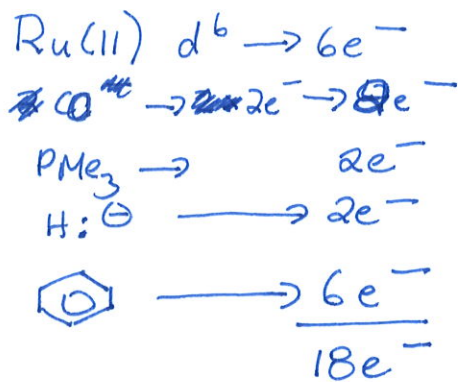 Ru(II) d⁶ → 6e⁻
CO → 2e⁻ → e⁻
PMe₃ → 2e⁻
H:⊖ → 2e⁻
→ 6e⁻
18e⁻